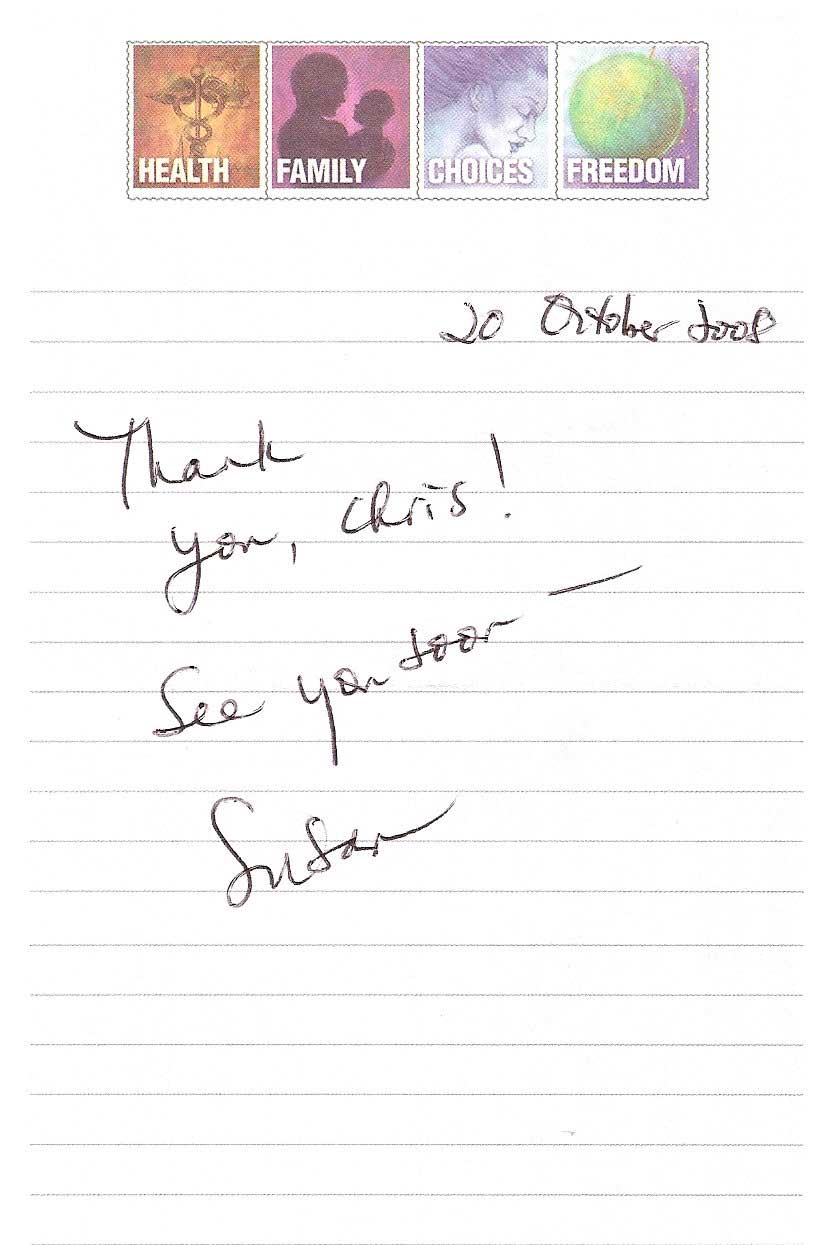 HEALTH FAMILY CHOICES FREEDOM
20 October 2008
Thank
you, Chris!
See you soon —
Susan